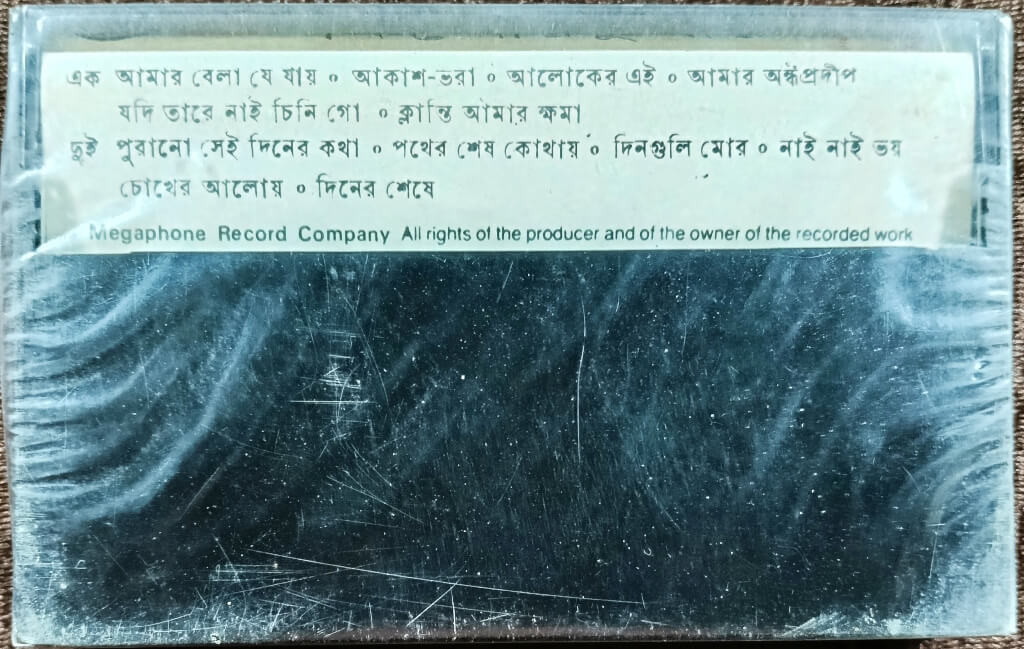 এক আমার বেলা যে যায় ০ আকাশ-ভরা ০ আলোকের এই ০ আমার অন্ধপ্রদীপ
যদি তারে নাই চিনি গো ০ ক্লান্তি আমার ক্ষমা
দুই পুরানো সেই দিনের কথা ০ পথের শেষ কোথায় ০ দিনগুলি মোর ০ নাই নাই ভয়
চোখের আলোয় ০ দিনের শেষে
Megaphone Record Company All rights of the producer and of the owner of the recorded work